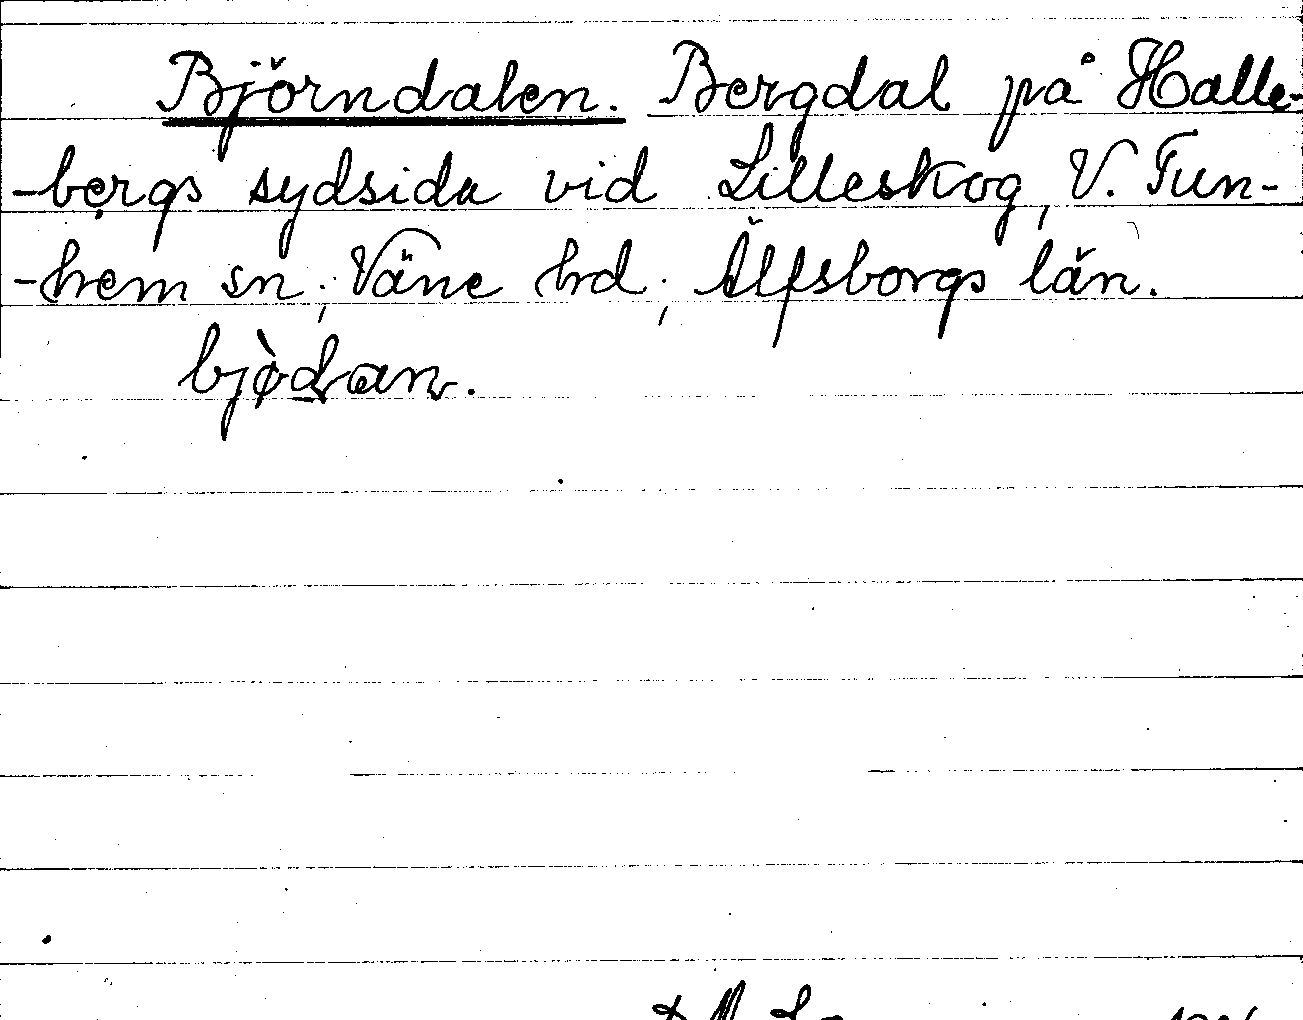 Björndalen. Bergdal på Halle-
-bergs sydsida vid Lilleskog, V. Tun-
-hem sn; Väne hd; Älfsborgs län.
bjòdan.